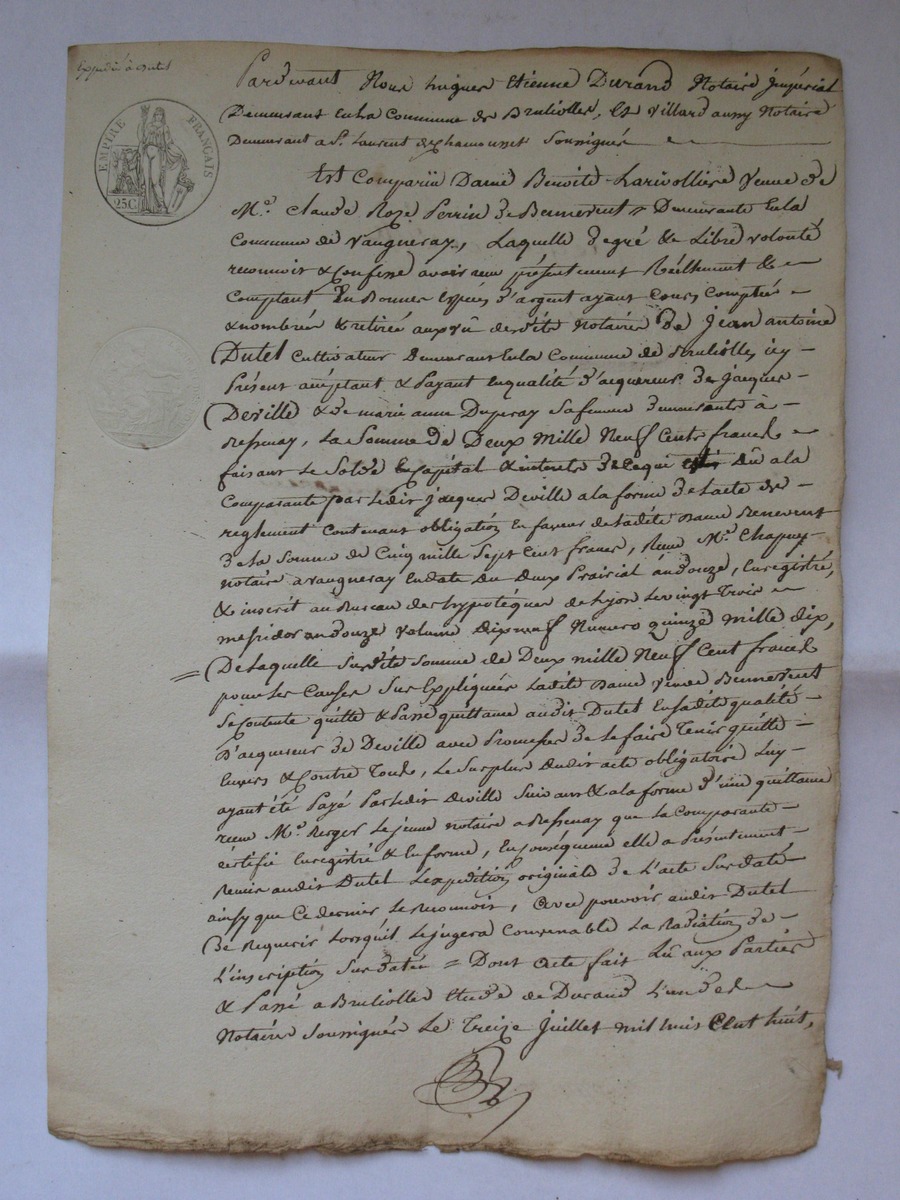 Expédié à Dutel
EMPIRE FRANÇAIS
25C.
Pardevant Nous hugues Etienne Durand Notaire Impérial
Demeurant en la Commune de Brulliolles, Et Villard aussy Notaire
Demeurant a St. Laurent de Chamousset Soussignés
Est Comparüe Dame Benoite Larivollière Veuve de
Me. Claude Roze Perrin de Benevent = Demeurante en la
Commune de Vaugneray, Laquelle de gré & Libre volonté
reconnoit & Confesse avoir reçu présentement Réellement &
Comptant En Bonnes Espèces d'argent ayant Cours Comptées
& nombrées & retirée aux vû desdits Notaires de Jean antoine
Dutel Cultivateur Demeurant En la Commune de Brulliolles icy
Présent acceptant & Payant En qualité d'acquereur de Jacques
Deville & de marie anne Duperay Sa femme demeurants à
Bessenay, La Somme de Deux Mille Neuf Cents francs
faisant Le Solde En Capital & interets de Ce qui Est dû a la
Comparante par Ledit Jacques Deville a la forme de Lacte de
reglement Contenant obligation En faveur de Ladite Dame Benevent
de La Somme de Cinq mille Sept Cent francs, Reçu Me. Chapuy
notaire a Vaugneray En date du deux Prairial an douze, Enregistré,
& inscrit au Bureau des hypotéques de Lyon Le vingt Trois
messidor an douze volume dixneuf Numero quinze mille dix,
= De Laquelle Susdite Somme de Deux mille Neuf Cent francs
pour Les Causes Sus Expliquées Ladite Dame Veuve Bennevent
Se Contente quitte & Passe quittance audit Dutel En Sadite qualité
D'acquereur de Deville avec Promesse de Le faire Tenir quitte
Envers & Contre Tous, Le Surplus dudit acte obligatoire Luy
ayant été Payé Par Ledit Deville Suivant & a la forme d'une quittance
reçue Me. Berger Le jeune notaire a Bessenay que La Comparante
Certifie Enregistré & En forme, En Conséquence elle a Présentement
Remis audit Dutel Lexpedition originale de L'acte Sus daté
ainsy que Ce dernier Le Reconnoit, avec pouvoir audit Dutel
de Requerir Lorsquil Le jugera Convenable La Radiation de
L'inscription Sus datée = Dont acte fait Lû aux Parties
& Passé a Brulliolles Etude de Durand L'un des
Notaires Soussignés Le Treize Juillet mil huit Cent huit,